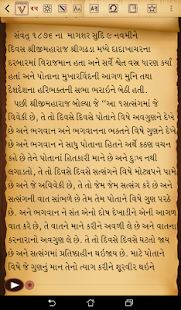 ૧૬
સંવત્ ૧૮૭૬ ના માગશર સુદિ ૯ નવમીને
દિવસ શ્રીજીમહારાજ શ્રીગઢડા મધ્યે દાદાખાચરના
દરબારમાં વિરાજમાન હતા અને સર્વે શ્વેત વસ્ત્ર ધારણ કર્યાં
હતાં અને પોતાના મુખારવિંદની આગળ મુનિ તથા
દેશદેશના હરિભક્તની સભા ભરાઈને બેઠી હતી.
પછી શ્રીજીમહારાજ બોલ્યા જે “ ૧સત્સંગમાં જે
વિવેકી છે, તે તો દિવસે દિવસે પોતાને વિષે અવગુણને દેખે
છે અને ભગવાન અને ભગવાનના ભક્તને વિષે ગુણને દેખે
છે. અને ભગવાન ને સાધુ પોતાના હિતને અર્થે કઠણ વચન
કહે છે તેને પોતાના હિતકારી માને છે અને દુઃખ નથી
લગાડતો, તે તો દિવસે દિવસે સત્સંગને વિષે મોટ્યપને પામે
છે. અને જે અવિવેકી છે, તે તો જેમ જેમ સત્સંગ કરે છે અને
સત્સંગની વાત સાંભળે છે તેમ તેમ પોતાને વિષે ગુણ પરઠે
છે. અને ભગવાન ને સંત એનો દોષ દેખાડીને એની આગળ
વાત કરે છે, તે વાતને માને કરીને અવળી લે છે અને વાતના
કરનારાનો અવગુણ લે છે. તે તો દિવસે દિવસે ઘટતો જાય
છે અને સત્સંગમાં પ્રતિષ્ઠાહીન થઈજાય છે. માટે પોતાને
વિષે જે ગુણનું માન તેનો ત્યાગ કરીને શૂરવીર થઈને